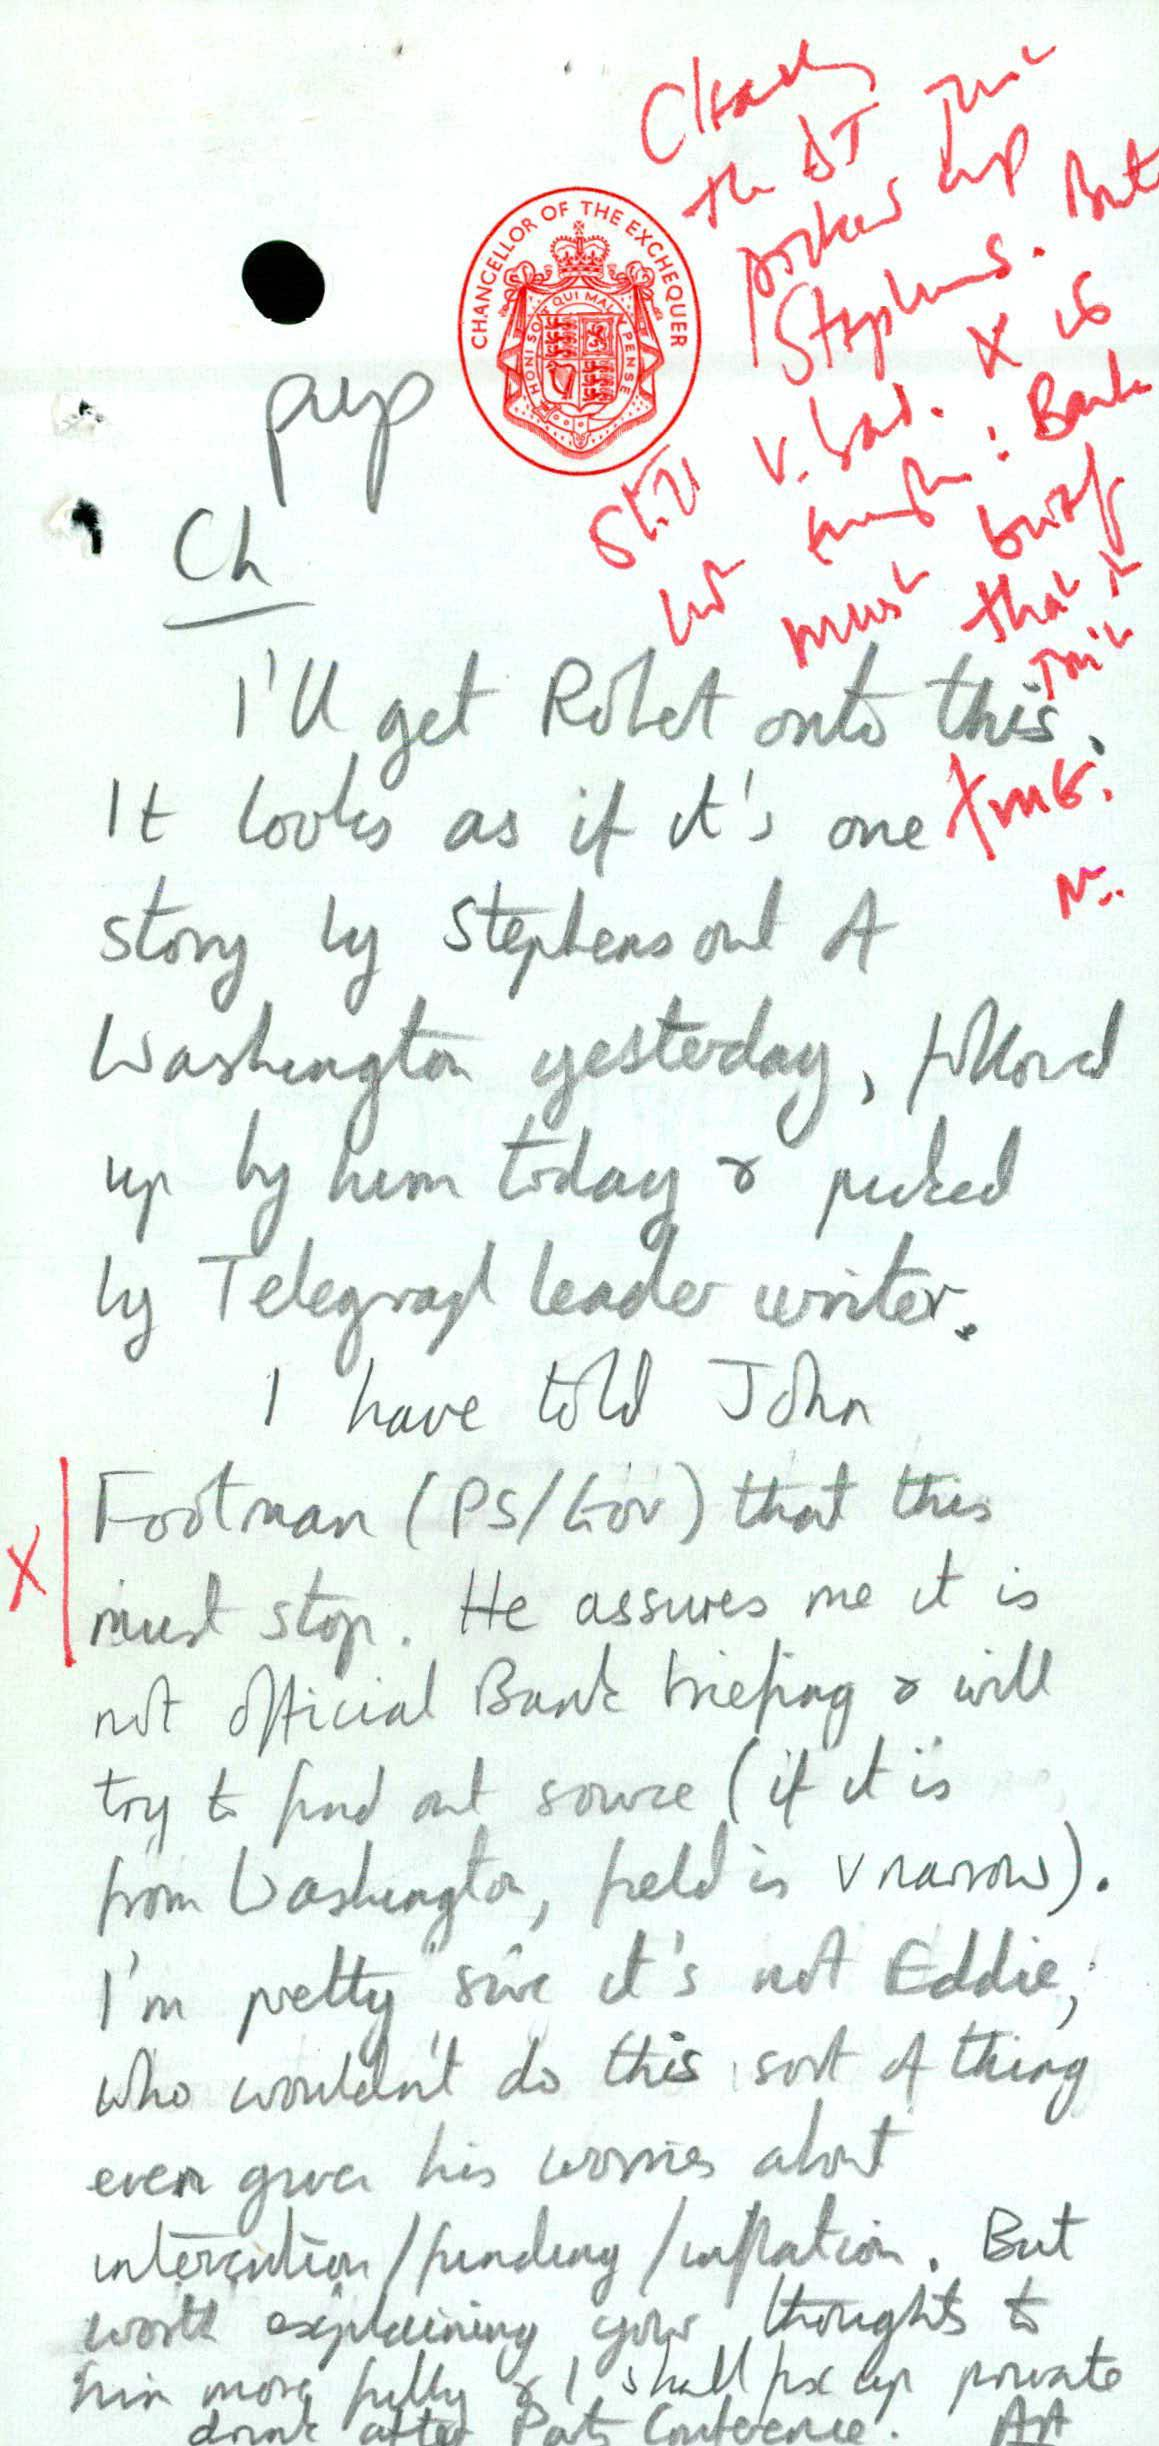 Clearly
the DT just
picked up
Stephens. But
still v. bad. X is
not enough: Bank
must brief
that it
isn't
true.
N.
CHANCELLOR OF THE EXCHEQUER
HONI SOIT QUI MAL Y PENSE
pup
Ch
I'll get Robert onto this.
It looks as if it's one
story by Stephens out of
Washington yesterday, followed
up by him today & picked
by Telegraph leader writer.
I have told John
Footman (PS/Gov) that this
X
must stop. He assures me it is
not official Bank briefing & will
try to find out source (if it is
from Washington, field is v narrow).
I'm pretty sure it's not Eddie,
who wouldn't do this sort of thing
even given his worries about
intervention/funding/inflation. But
worth explaining your thoughts to
him more fully & I shall fix up private
drink after Party Conference. AA